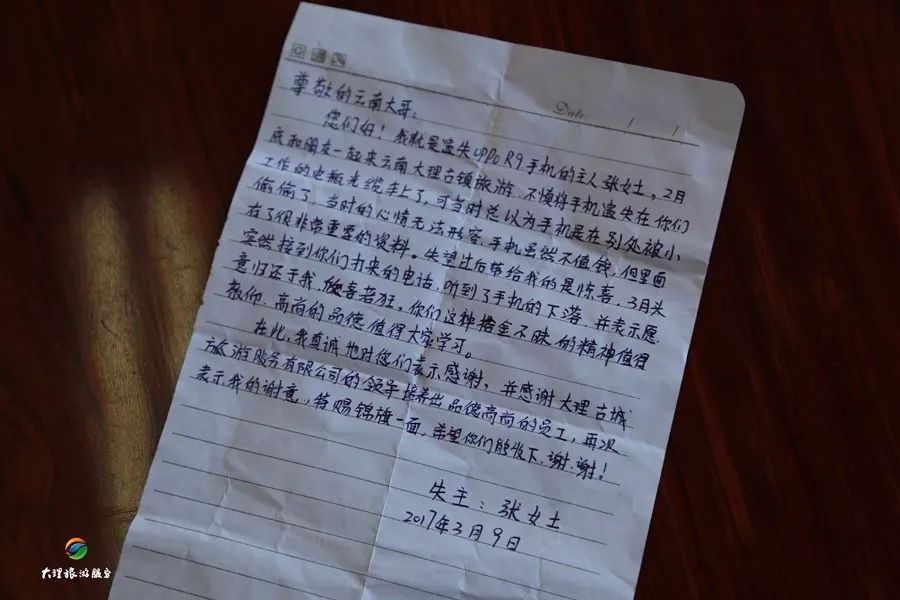 Date: / /
尊敬的云南大哥：
您们好！我就是遗失OPPO R9手机的主人张女士，2月
底和朋友一起来云南大理古镇旅游，不慎将手机遗失在你们
工作的电瓶光缆车上了，可当时总以为手机是在别处被小
偷偷了，当时的心情无法形容，手机虽然不值钱，但里面
存了很非常重要的资料。失望过后带给我的是惊喜，3月头
突然接到你们打来的电话，听到了手机的下落，并表示愿
意归还于我，欣喜若狂，你们这种拾金不昧的精神值得
敬仰，高尚的品德值得大家学习。
在此，我真诚地对您们表示感谢，并感谢大理古城
旅游服务有限公司的领导培养出品德高尚的员工，再次
表示我的谢意，特赐锦旗一面，希望你们能收下，谢谢！
失主：张女士
2017年3月9日
大理旅游服务